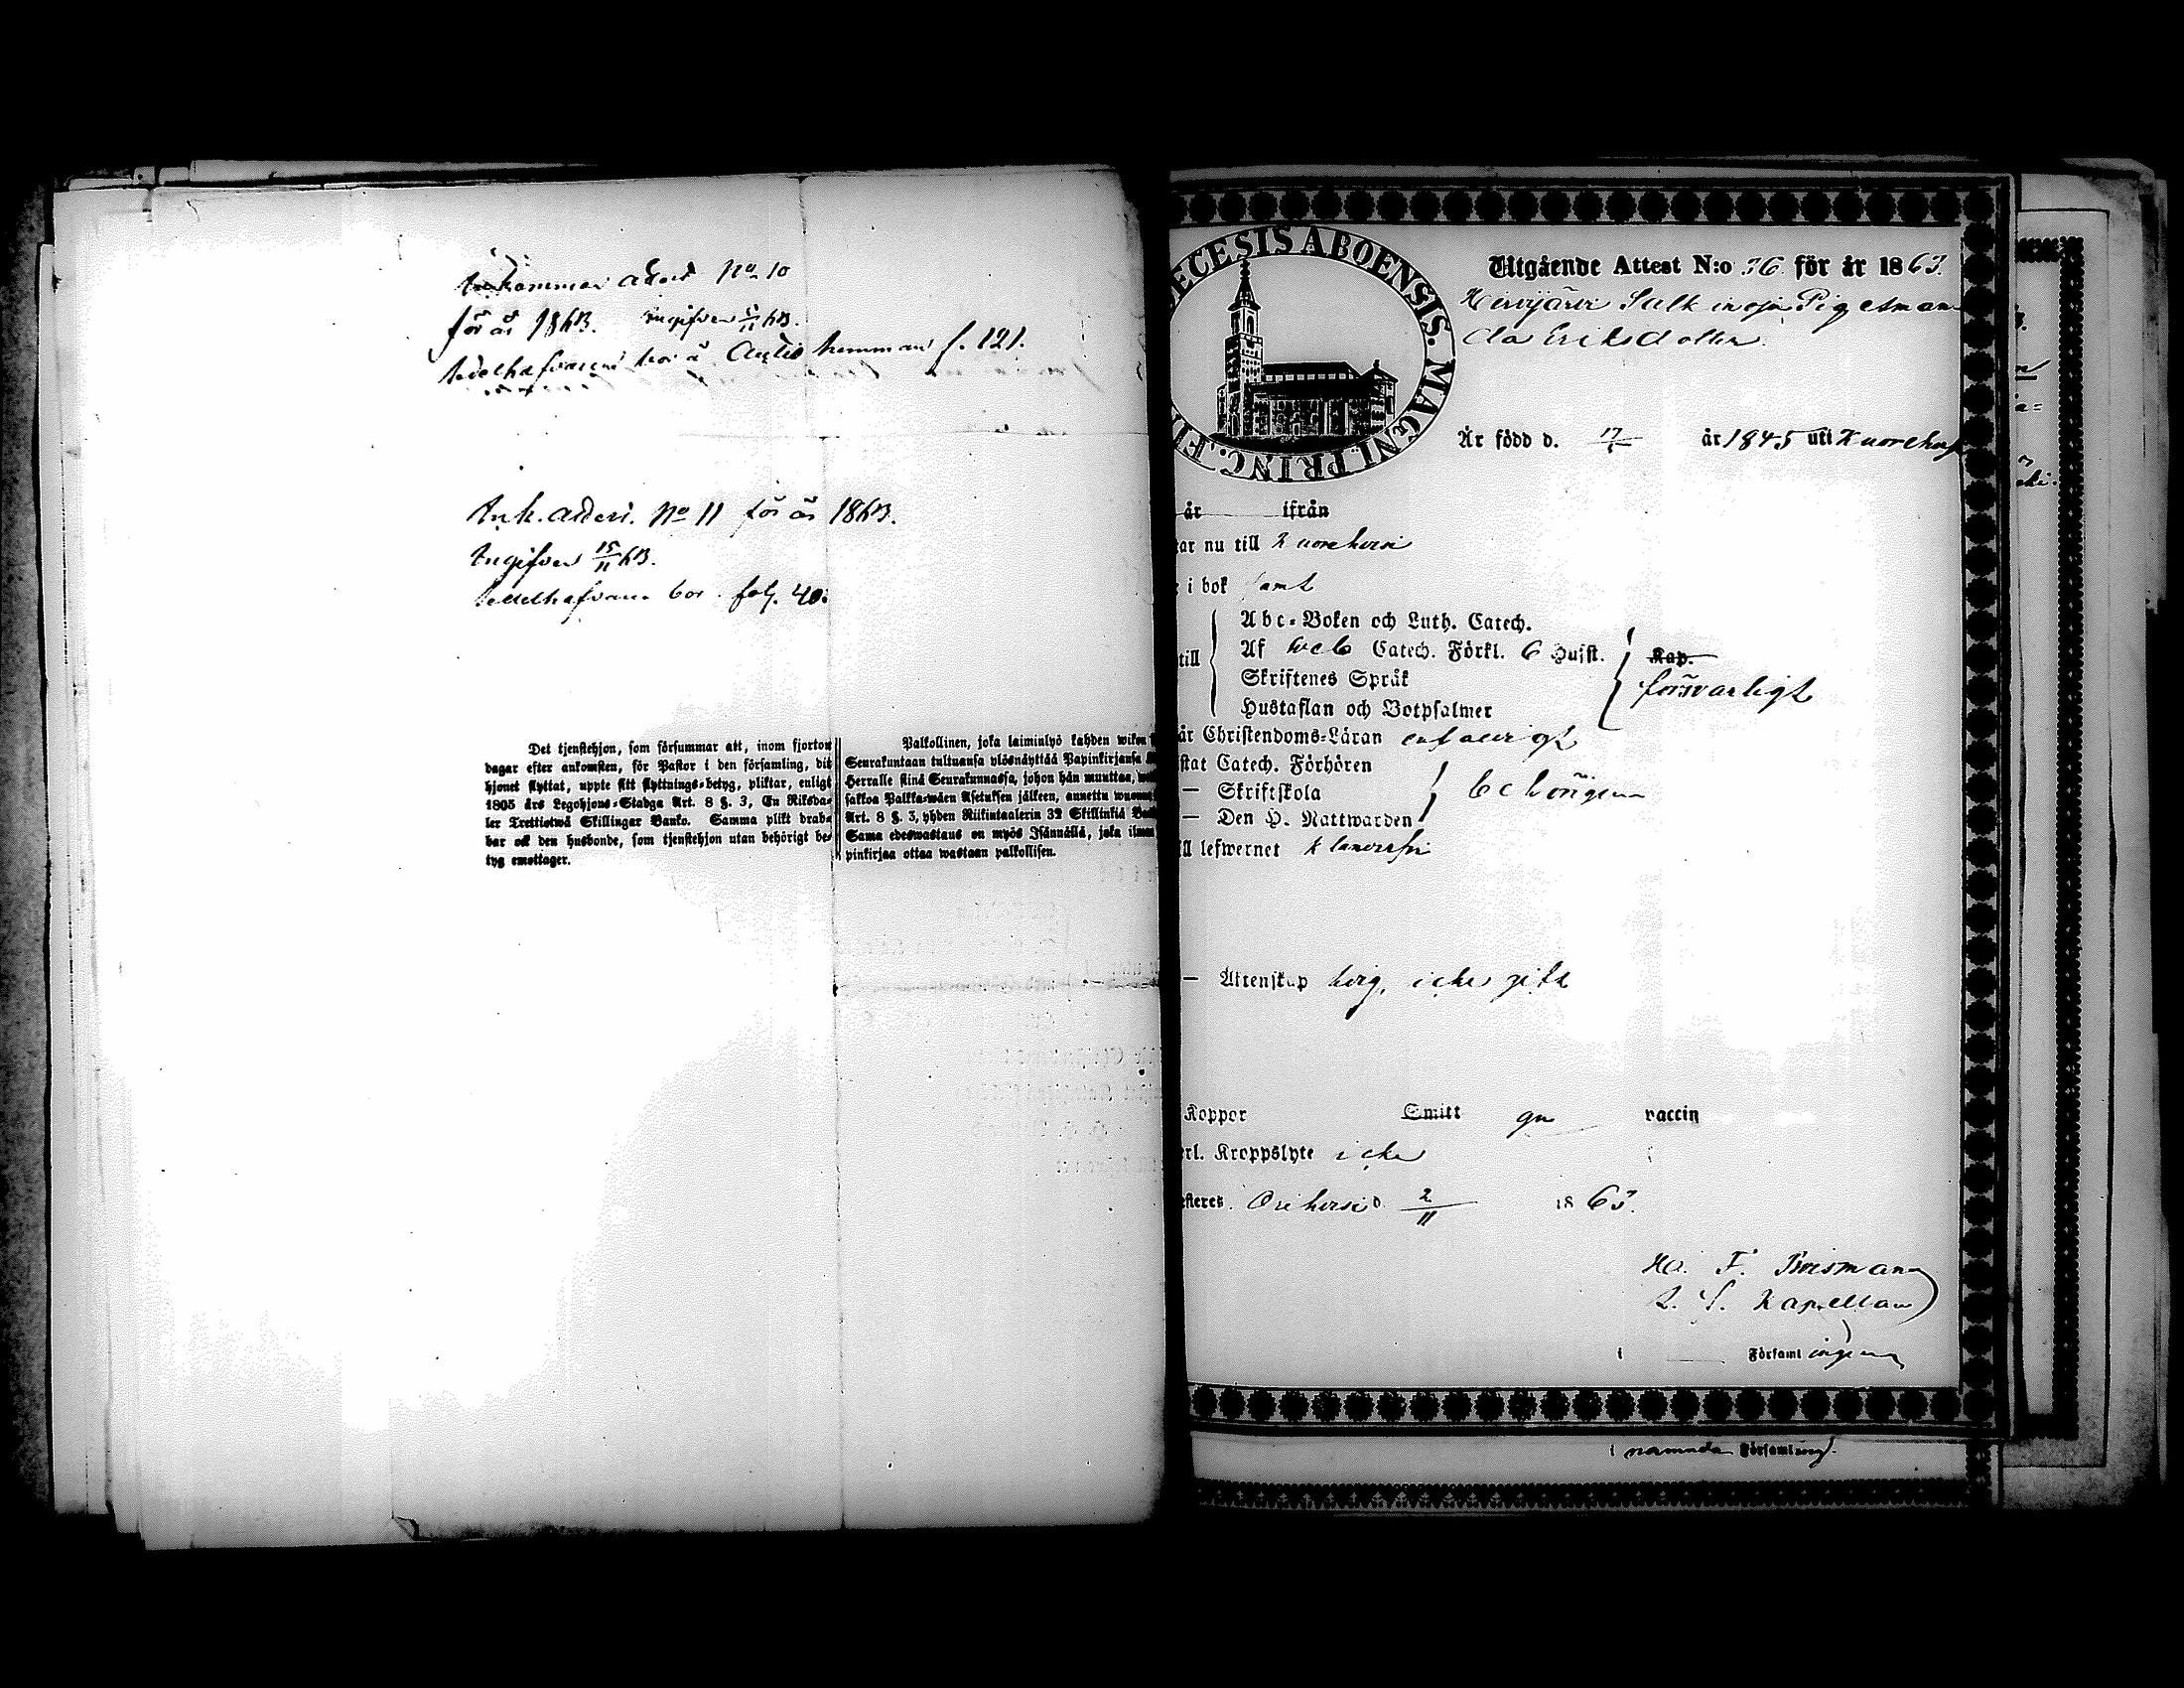 Ankommen attest No 10
för år 1863. Ingifven 5/11 63.
sedelhafvaren bor å Anttis hemman f. 121.
Ank. attest. No 11 för år 1863.
Ingifven 15/11 63.
sedelhafvaren bor fol. 40.
Det tjenstehjon, som försummar att, inom fjorton
dagar efter ankomsten, för Pastor i den församling, dit
hjonet flyttat, uppte sitt flyttnings-betyg, pliktar, enligt
1805 års Legohjons-Stadga Art. 8 §. 3, En Riksda-
ler Trettiotwå Skillingar Banko. Samma plikt drab-
bar ock den husbonde, som tjenstehjon utan behörigt be-
tyg emottager.
Palkollinen, joka laiminlyö kahden wikon
Seurakuntaan tultuansa ylösnäyttää Papinkirjansa
Herralle siinä Seurakunnassa, johon hän muuttaa,
sakkoa Palkka-wäen Asetuksen jälkeen, annettu wuonna
Art. 8 §. 3, yhden Riikintaalerin 32 Skillinkiä
Sama edeswastaus on myös Isännällä, joka ilman
pinkirjaa ottaa wastaan palkollisen.
ECESIS ABOENSIS. MAGNI. PRINC. FI
Utgående Attest N:o 36 för år 1863.
Pigan
Eriksdotter.
Är född d. 17 år 1845 uti
år ifrån
tar nu till Kuorehvesi
i bok samt
till
Abc-Boken och Luth. Catech.
Af Catech. Förkl. 6 Hufst. Kap.
Skriftenes Språk
försvarligt
Hustaflan och Botpsalmer
år Christendoms-Läran enfaldigt
stat Catech. Förhören
— Skriftskola
behörigen
— Den H. Nattwarden
ll lefwernet klanderfri
— Äktenskap ledig, icke gift
Koppor Smitt gn vaccin
erl. Kroppslyte icke
esteres. Orihvesi d 2/11 1863.
F.
Kapellan
i Församl ingen
i nämnda Församling.